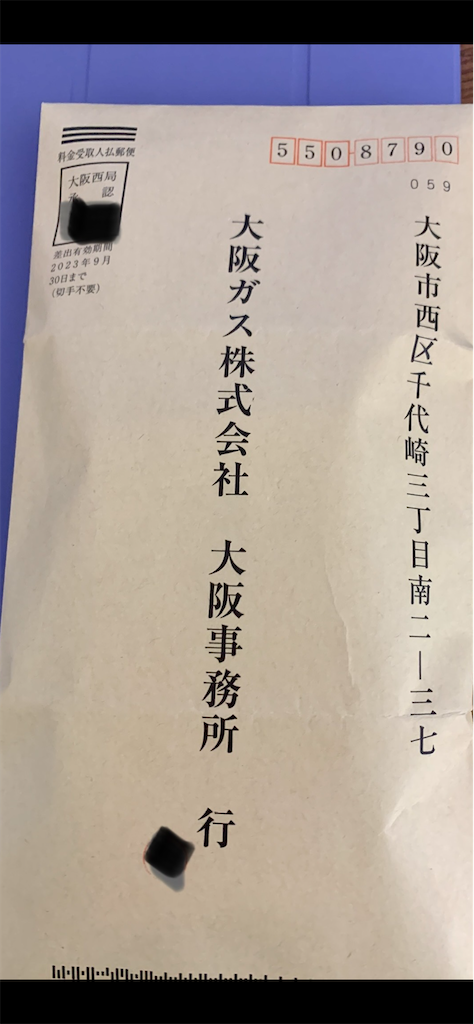 料金受取人払郵便
大阪西局
承認
差出有効期間
2023年9月
30日まで
(切手不要)
5508790
059
大阪市西区千代崎三丁目南二―三七
大阪ガス株式会社 大阪事務所 行